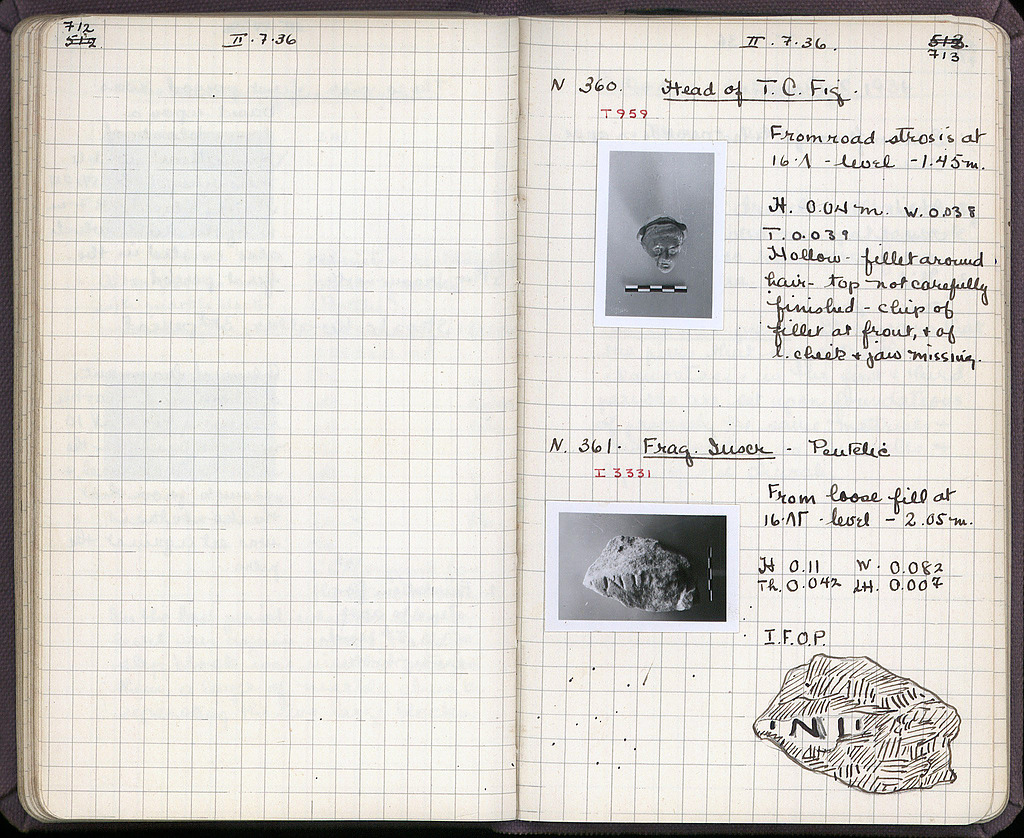 712
512
II.7.36
II.7.36.
513.
713
N 360. Head of T.C. Fig.
T959
From road strosis at
16·Λ - level -1.45m.
H. 0.04 m. W. 0.038
T. 0.039
Hollow - fillet around
hair - top not carefully
finished - chip of
fillet at front, + of
l. cheek + jaw missing.
N. 361. Frag. Inscr - Pentelic
I 3331
From loose fill at
level - 2.05m.
H 0.11 W. 0.082
Th. 0.042 LH. 0.007
I.F.O.P.